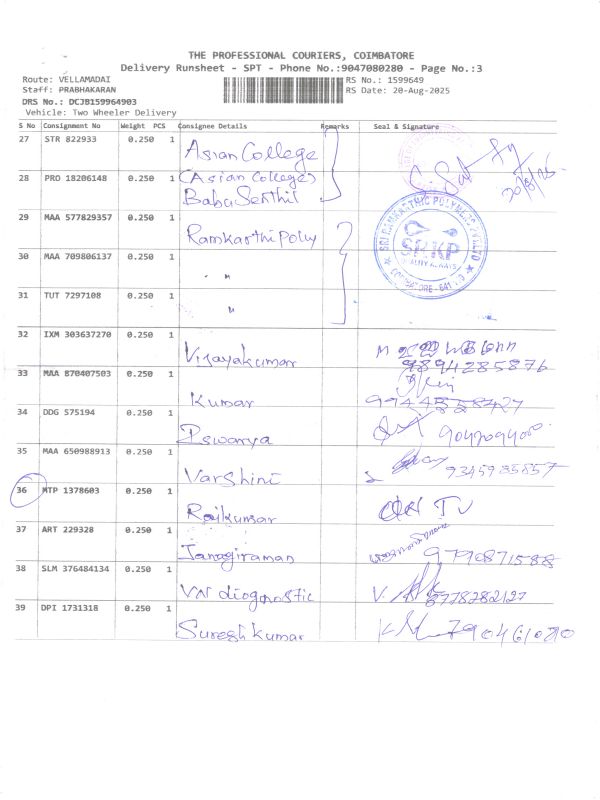 THE PROFESSIONAL COURIERS, COIMBATORE
Delivery Runsheet - SPT - Phone No.:9047080280 - Page No.:3
Route: VELLAMADAI RS No.: 1599649
Staff: PRABHAKARAN RS Date: 20-Aug-2025
DRS No.: DCJB159964903
Vehicle: Two Wheeler Delivery
S No Consignment No Weight PCS Consignee Details Remarks Seal & Signature
27 STR 822933 0.250 1 Asian College
28 PRO 18206148 0.250 1 (Asian College) 20/8/25
Babu Senthil
29 MAA 577829357 0.250 1 Ramkarthi Poly
SRI RAMKARTHIC POLYMERS PVT LTD
SRKP
QUALITY ALWAYS
COIMBATORE - 641 110
30 MAA 709806137 0.250 1 "
31 TUT 7297108 0.250 1 "
32 IXM 303637270 0.250 1 Vijayakumar 9894285876
33 MAA 870407503 0.250 1 Kumar
34 DDG 575194 0.250 1 Iswarya
35 MAA 650988913 0.250 1 Varshini 9345935857
36 MTP 1378603 0.250 1 Rajkumar
37 ART 229328 0.250 1 Janagiraman 9790871588
38 SLM 376484134 0.250 1 VN diagnostic 8778282127
39 DPI 1731318 0.250 1 Suresh kumar